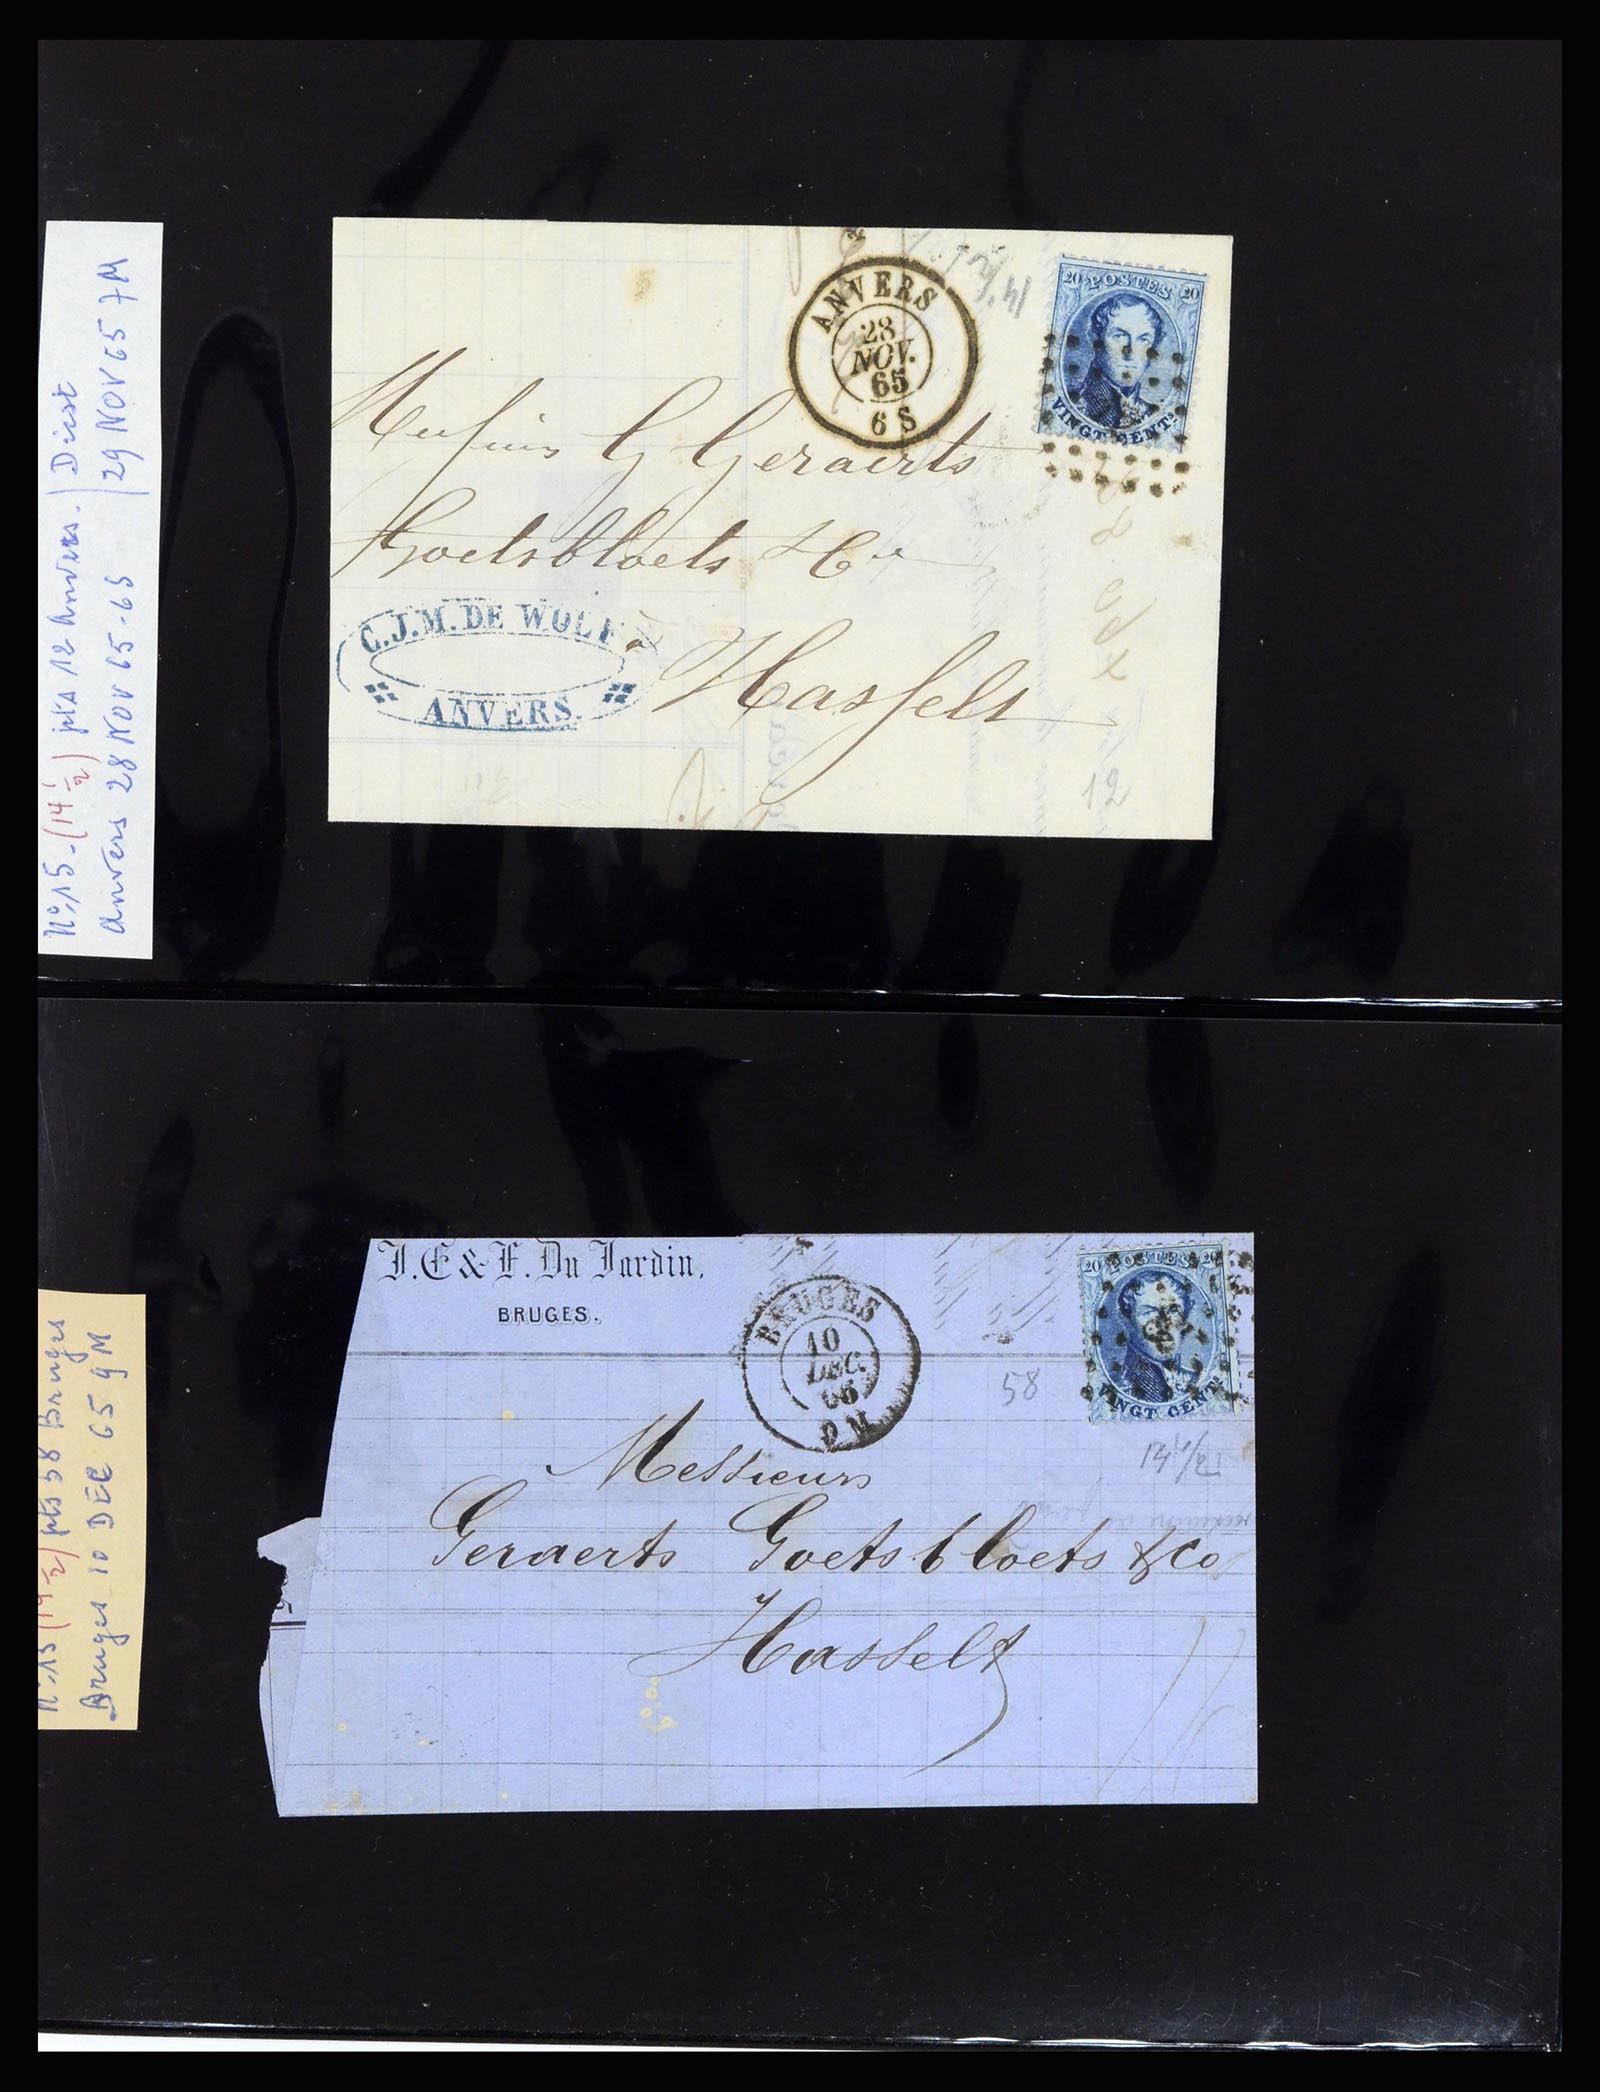 Nº 15 - (14 1/2) pts 12 Anvers. / Diest
Anvers 28 NOV 65-65 / 29 NOV 65 7M
ANVERS
28
NOV.
65
6 S
14 1/2
20 POSTES 20
VINGT CENTS
G Geraerts
Goetsbloets & Cie
à
Hasselt
C.J.M. DE WOLF
ANVERS.
12
Nº 15 (14 1/2) pts 58 Bruges
Bruges 10 DEC 65 9M
J. E & F. Du Jardin.
BRUGES.
BRUGES
10
DEC.
9 M
20 POSTES 20
VINGT CENTS
58
14 1/2
Messieurs
Geraerts Goetsbloets & Co
Hasselt